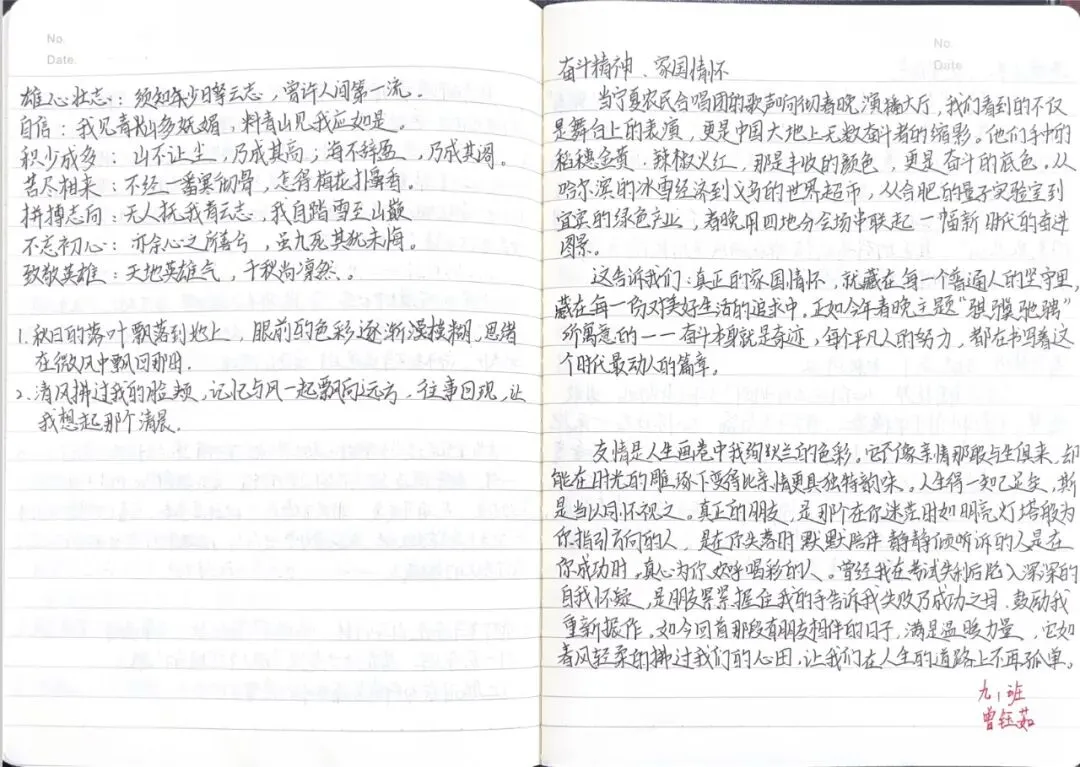 No.
Date.
雄心壮志：须知少日擎云志，曾许人间第一流。
自信：我见青山多妩媚，料青山见我应如是。
积少成多：山不让尘，乃成其高；海不辞盈，乃成其阔。
苦尽相来：不经一番寒彻骨，怎得梅花扑鼻香。
拼搏志向：无人扶我青云志，我自踏雪至山巅
不忘初心：亦余心之所善兮，虽九死其犹未悔。
致敬英雄：天地英雄气，千秋尚凛然。。
1.秋日的落叶飘落到地上，眼前的色彩逐渐漫模糊，思绪
在微风中飘回那日.
2.清风拂过我的脸颊，记忆与风一起飘向远方，往事回现，让
我想起那个清晨.
No.
Date
奋斗精神、家国情怀
当宁夏农民合唱团的歌声响彻春晚演播大厅，我们看到的不仅
是舞台上的表演，更是中国大地上无数奋斗者的缩影。他们手中的
稻穗金黄，辣椒火红，那是丰收的颜色，更是奋斗的底色。从
哈尔滨的冰雪经济到义乌的世界超市，从合肥的量子实验室到
宜宾的绿色产业，春晚用四地分会场串联起一幅新时代的奋进
图景。
这告诉我们：真正的家国情怀，就藏在每一个普通人的坚守里，
藏在每一份对美好生活的追求中。正如今年春晚主题“骐骥驰骋”
所寓意的——奋斗本身就是奇迹，每个平凡人的努力，都在书写着这
个时代最动人的篇章。
友情是人生画卷中我绚烂的色彩。它不像亲情那般与生俱来，却
能在时光的雕琢下变得比亲情更具独特韵味。人生得一知己足矣，斯
是当以同怀视之。真正的朋友，是那个在你迷茫时如明亮灯塔般为
你指引方向的人，是在你失落时默默陪伴静静倾听诉的人是在
你成功时，真心为你欢呼喝彩的人。曾经我在考试失利后陷入深深的
自我怀疑，是朋友紧紧握住我的手告诉我失败乃成功之母，鼓励我
重新振作。如今回首那段有朋友相伴的日子，满是温暖力量，它如
春风轻柔的拂过我们的心田，让我们在人生的道路上不再孤单。
九1班
曾钰茹